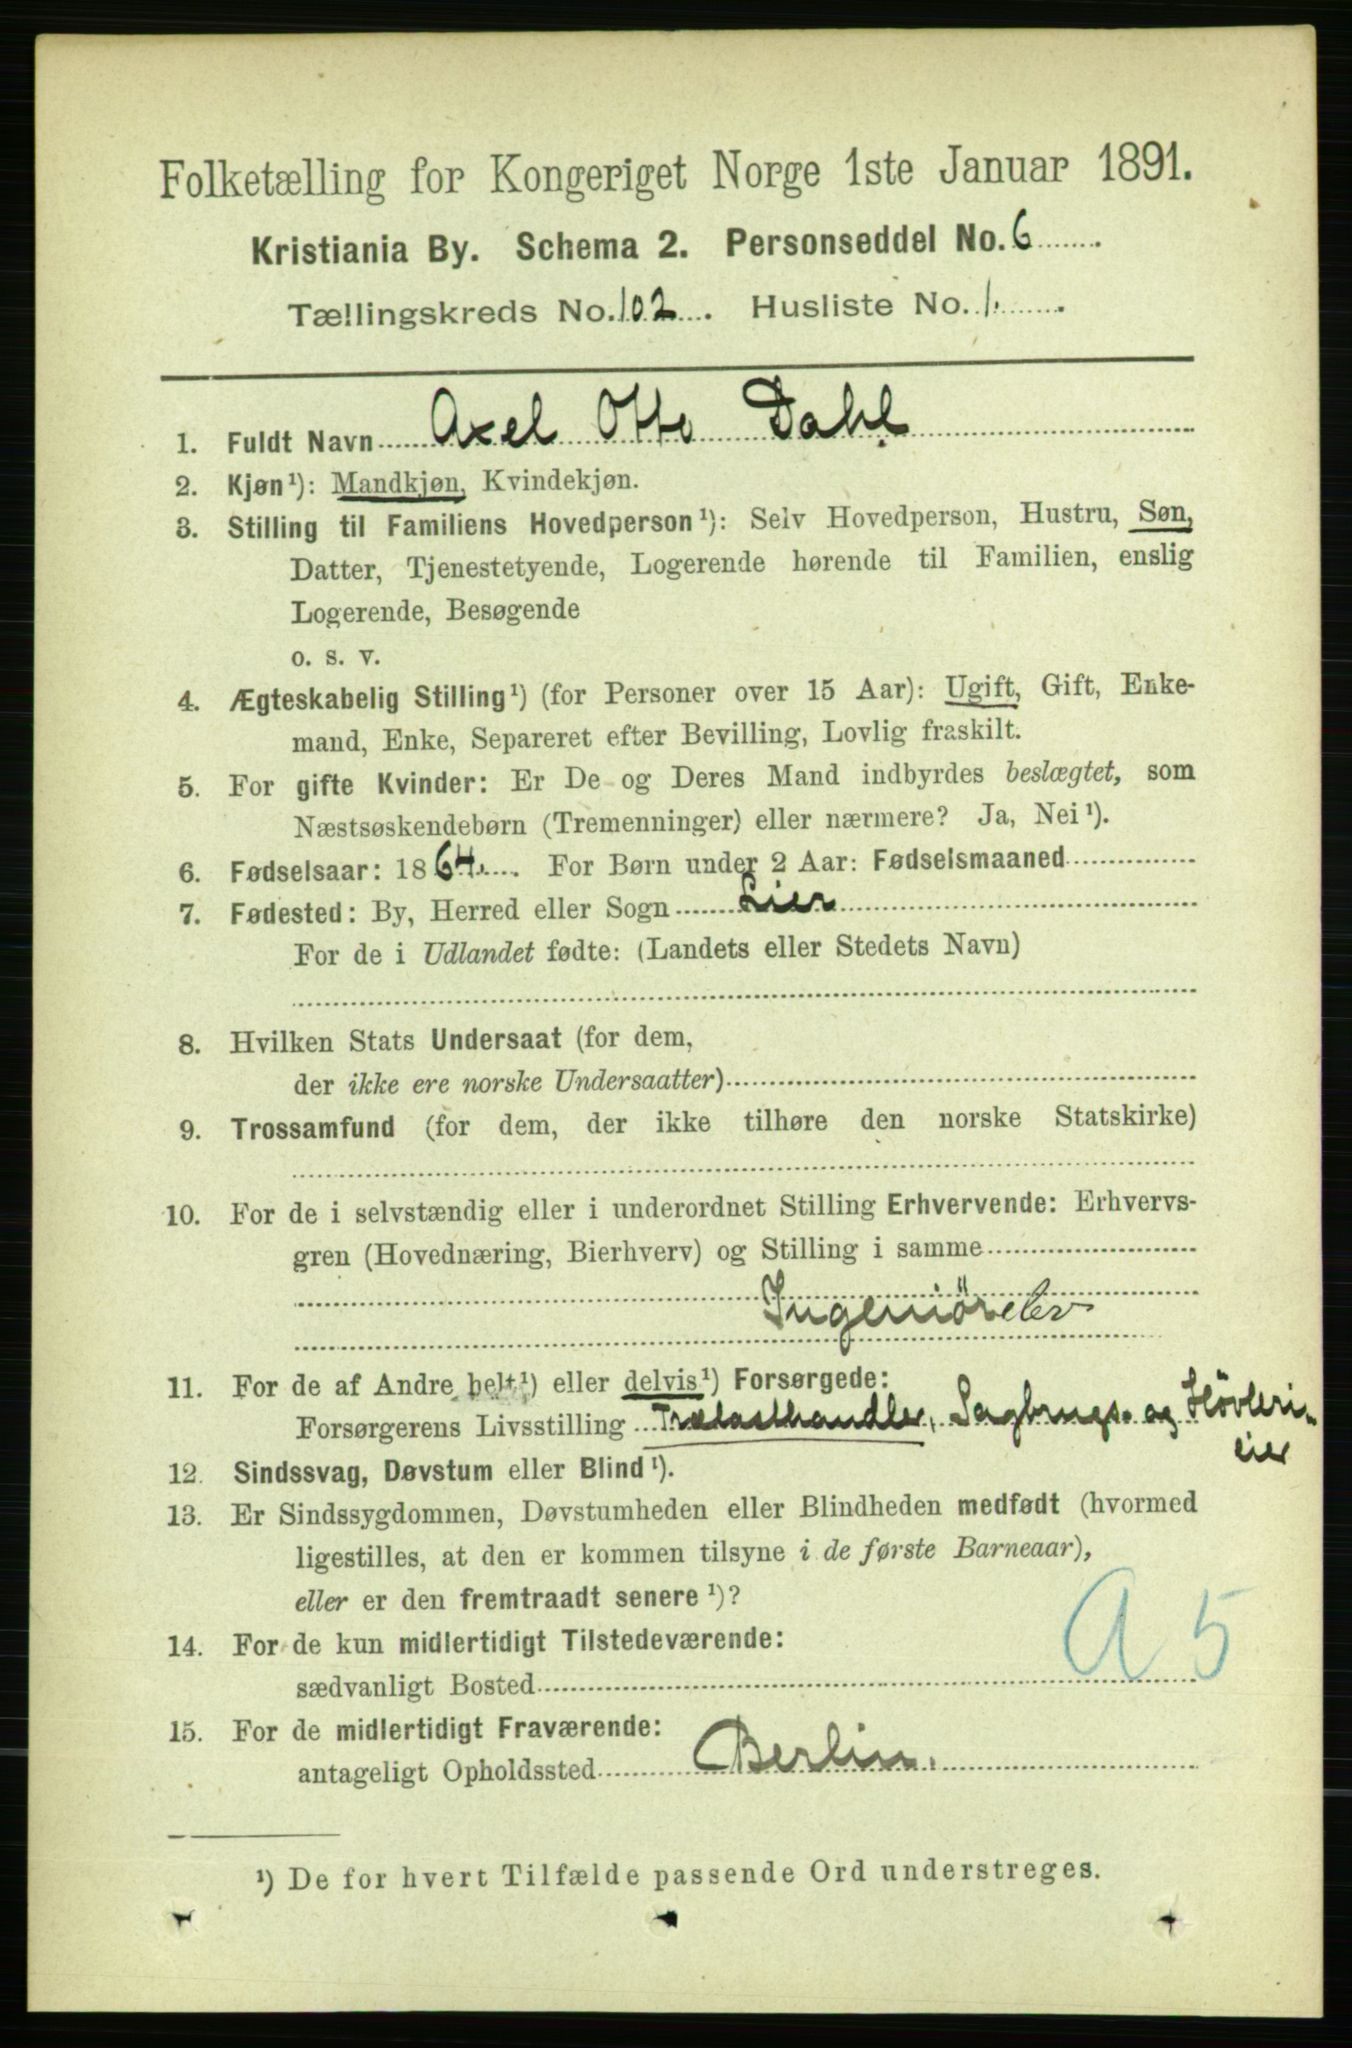 Folketælling for Kongeriget Norge 1ste Januar 1891.
Kristiania By. Schema 2. Personseddel No. 6
Tællingskreds No. 102. Husliste No. 1.
1. Fuldt Navn Axel Otto Dahl
2. Kjøn¹): Mandkjøn, Kvindekjøn.
3. Stilling til Familiens Hovedperson¹): Selv Hovedperson, Hustru, Søn,
Datter, Tjenestetyende, Logerende hørende til Familien, enslig
Logerende, Besøgende
o. s. v.
4. Ægteskabelig Stilling¹) (for Personer over 15 Aar): Ugift, Gift, Enke-
mand, Enke, Separeret efter Bevilling, Lovlig fraskilt.
5. For gifte Kvinder: Er De og Deres Mand indbyrdes beslægtet, som
Næstsøskendebørn (Tremenninger) eller nærmere? Ja, Nei¹).
6. Fødselsaar: 1864. For Børn under 2 Aar: Fødselsmaaned
7. Fødested: By, Herred eller Sogn Lier
For de i Udlandet fødte: (Landets eller Stedets Navn)
8. Hvilken Stats Undersaat (for dem,
der ikke ere norske Undersaatter)
9. Trossamfund (for dem, der ikke tilhøre den norske Statskirke)
10. For de i selvstændig eller i underordnet Stilling Erhvervende: Erhvervs-
gren (Hovednæring, Bierhverv) og Stilling i samme
Ingeniörelev
11. For de af Andre helt¹) eller delvis¹) Forsørgede:
Forsørgerens Livsstilling Trælasthandler, Sagbrugs- og Hövleri-
eier
12. Sindssvag, Døvstum eller Blind¹).
13. Er Sindssygdommen, Døvstumheden eller Blindheden medfødt (hvormed
ligestilles, at den er kommen tilsyne i de første Barneaar),
eller er den fremtraadt senere¹)?
14. For de kun midlertidigt Tilstedeværende:
sædvanligt Bosted
A 5
15. For de midlertidigt Fraværende:
antageligt Opholdssted Berlin.
¹) De for hvert Tilfælde passende Ord understreges.